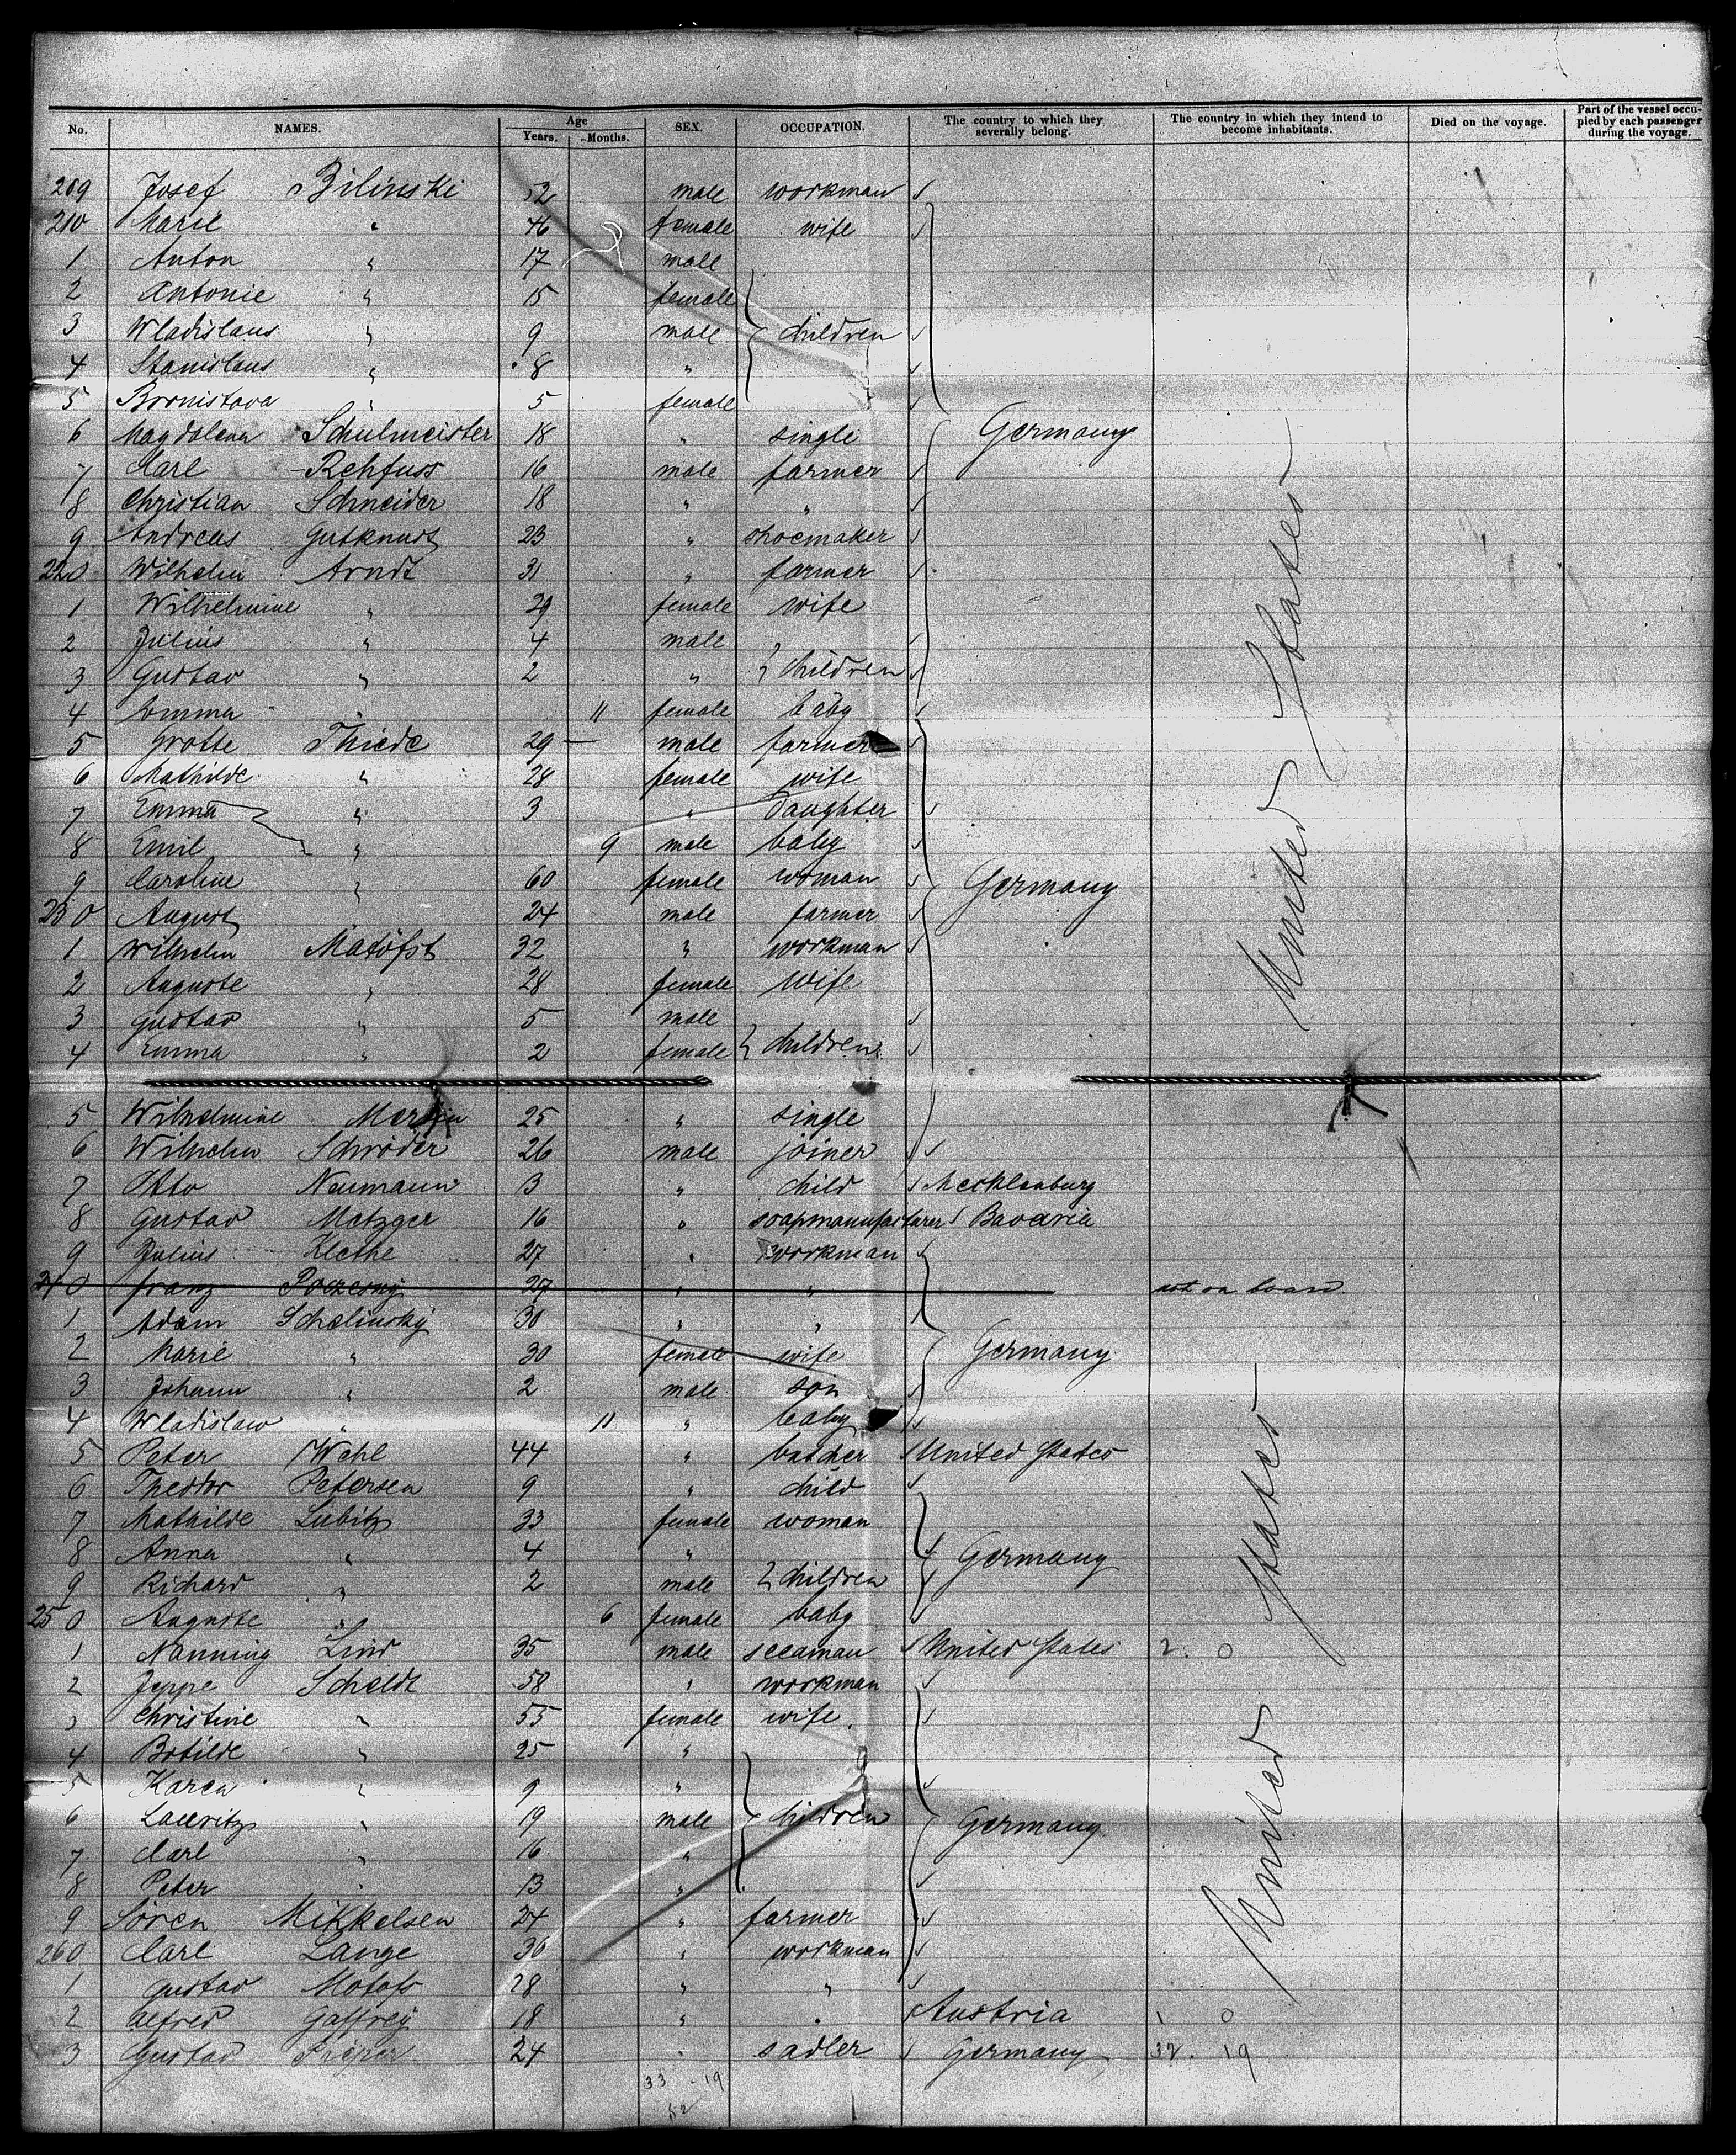 No. NAMES. Age Years. Months. SEX. OCCUPATION. The country to which they severally belong. The country in which they intend to become inhabitants. Died on the voyage. Part of the vessel occupied by each passenger during the voyage.
209 Josef Bilinski 52 male workman
210 Marie " 46 female wife
1 Anton " 17 male
2 Antonie " 15 female
3 Wladislaus " 9 male children
4 Stanislaus " 8 "
5 " 5 female
6 Magdalena Schulmeister 18 " single Germany
7 Carl Rehfuss 16 male farmer
8 Christian Schneider 18 " "
9 Andreas 23 " shoemaker
220 Wilhelm Arndt 31 " farmer
1 Wilhelmine " 29 female wife
2 Julius " 4 male
3 Gustav " 2 " children
4 Emma " 11 female baby
5 Thiede 29 — male farmer
6 Mathilde " 28 female wife
7 Emma " 3 " daughter
8 Emil " 9 male baby
9 Caroline " 60 female woman Germany
230 August 24 male farmer
1 Wilhelm 32 " workman
2 Auguste " 28 female wife
3 Gustav " 5 male
4 Emma " 2 female children
United States
5 Wilhelmine 25 " single
6 Wilhelm Schröder 26 male joiner
7 Otto Neumann 3 " child Mecklenburg
8 Gustav Metzger 16 " soapmanufacturer Bavaria
9 Julius Klethe 27 " workman
240 Franz 27 " " not on board
1 Adam Schelinsky 30 " "
2 Marie " 30 female wife Germany
3 Johann " 2 male son
4 Wladislaw " 11 " baby
5 Peter Wehl 44 " butcher United States
6 Theodor Petersen 9 " child
7 Mathilde Lubitz 33 female woman
8 Anna " 4 " Germany
9 Richard " 2 male children
250 Auguste " 6 female baby
United States
1 Nanning Lind 35 male seeaman United States 2. 0
2 Jeppe Scheldt 58 " workman
3 Christine " 55 female wife
4 Botilde " 25 "
5 Karen " 9 "
6 Lauritz " 19 male children Germany
7 Carl " 16 "
8 Peter " 13 "
9 Sören Mikkelsen 24 " farmer
260 Carl Lange 30 " workman
1 Gustav 28 " "
2 Alfred Gaffrey 18 " " Austria 1 0
3 Gustav 24 " sadler Germany 32. 19
United
33 - 19
52